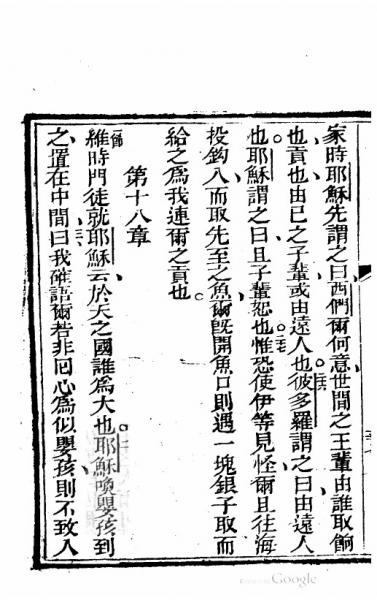 家時耶穌先謂之曰西們爾何意世間之王輩由誰取餉
也貢也由己之子輩或由遠人也彼多羅謂之曰由遠人
也耶穌謂之曰且子輩恕也惟恐使伊等見怪爾且往海
投鈎入而取先至之魚爾旣開魚口則遇一塊銀子取而
給之為我連爾之貢也
第十八章
維時門徒就耶穌云於天之國誰為大也耶穌喚嬰孩到
之置在中間曰我確語爾若非回心為似嬰孩則不致入
Google